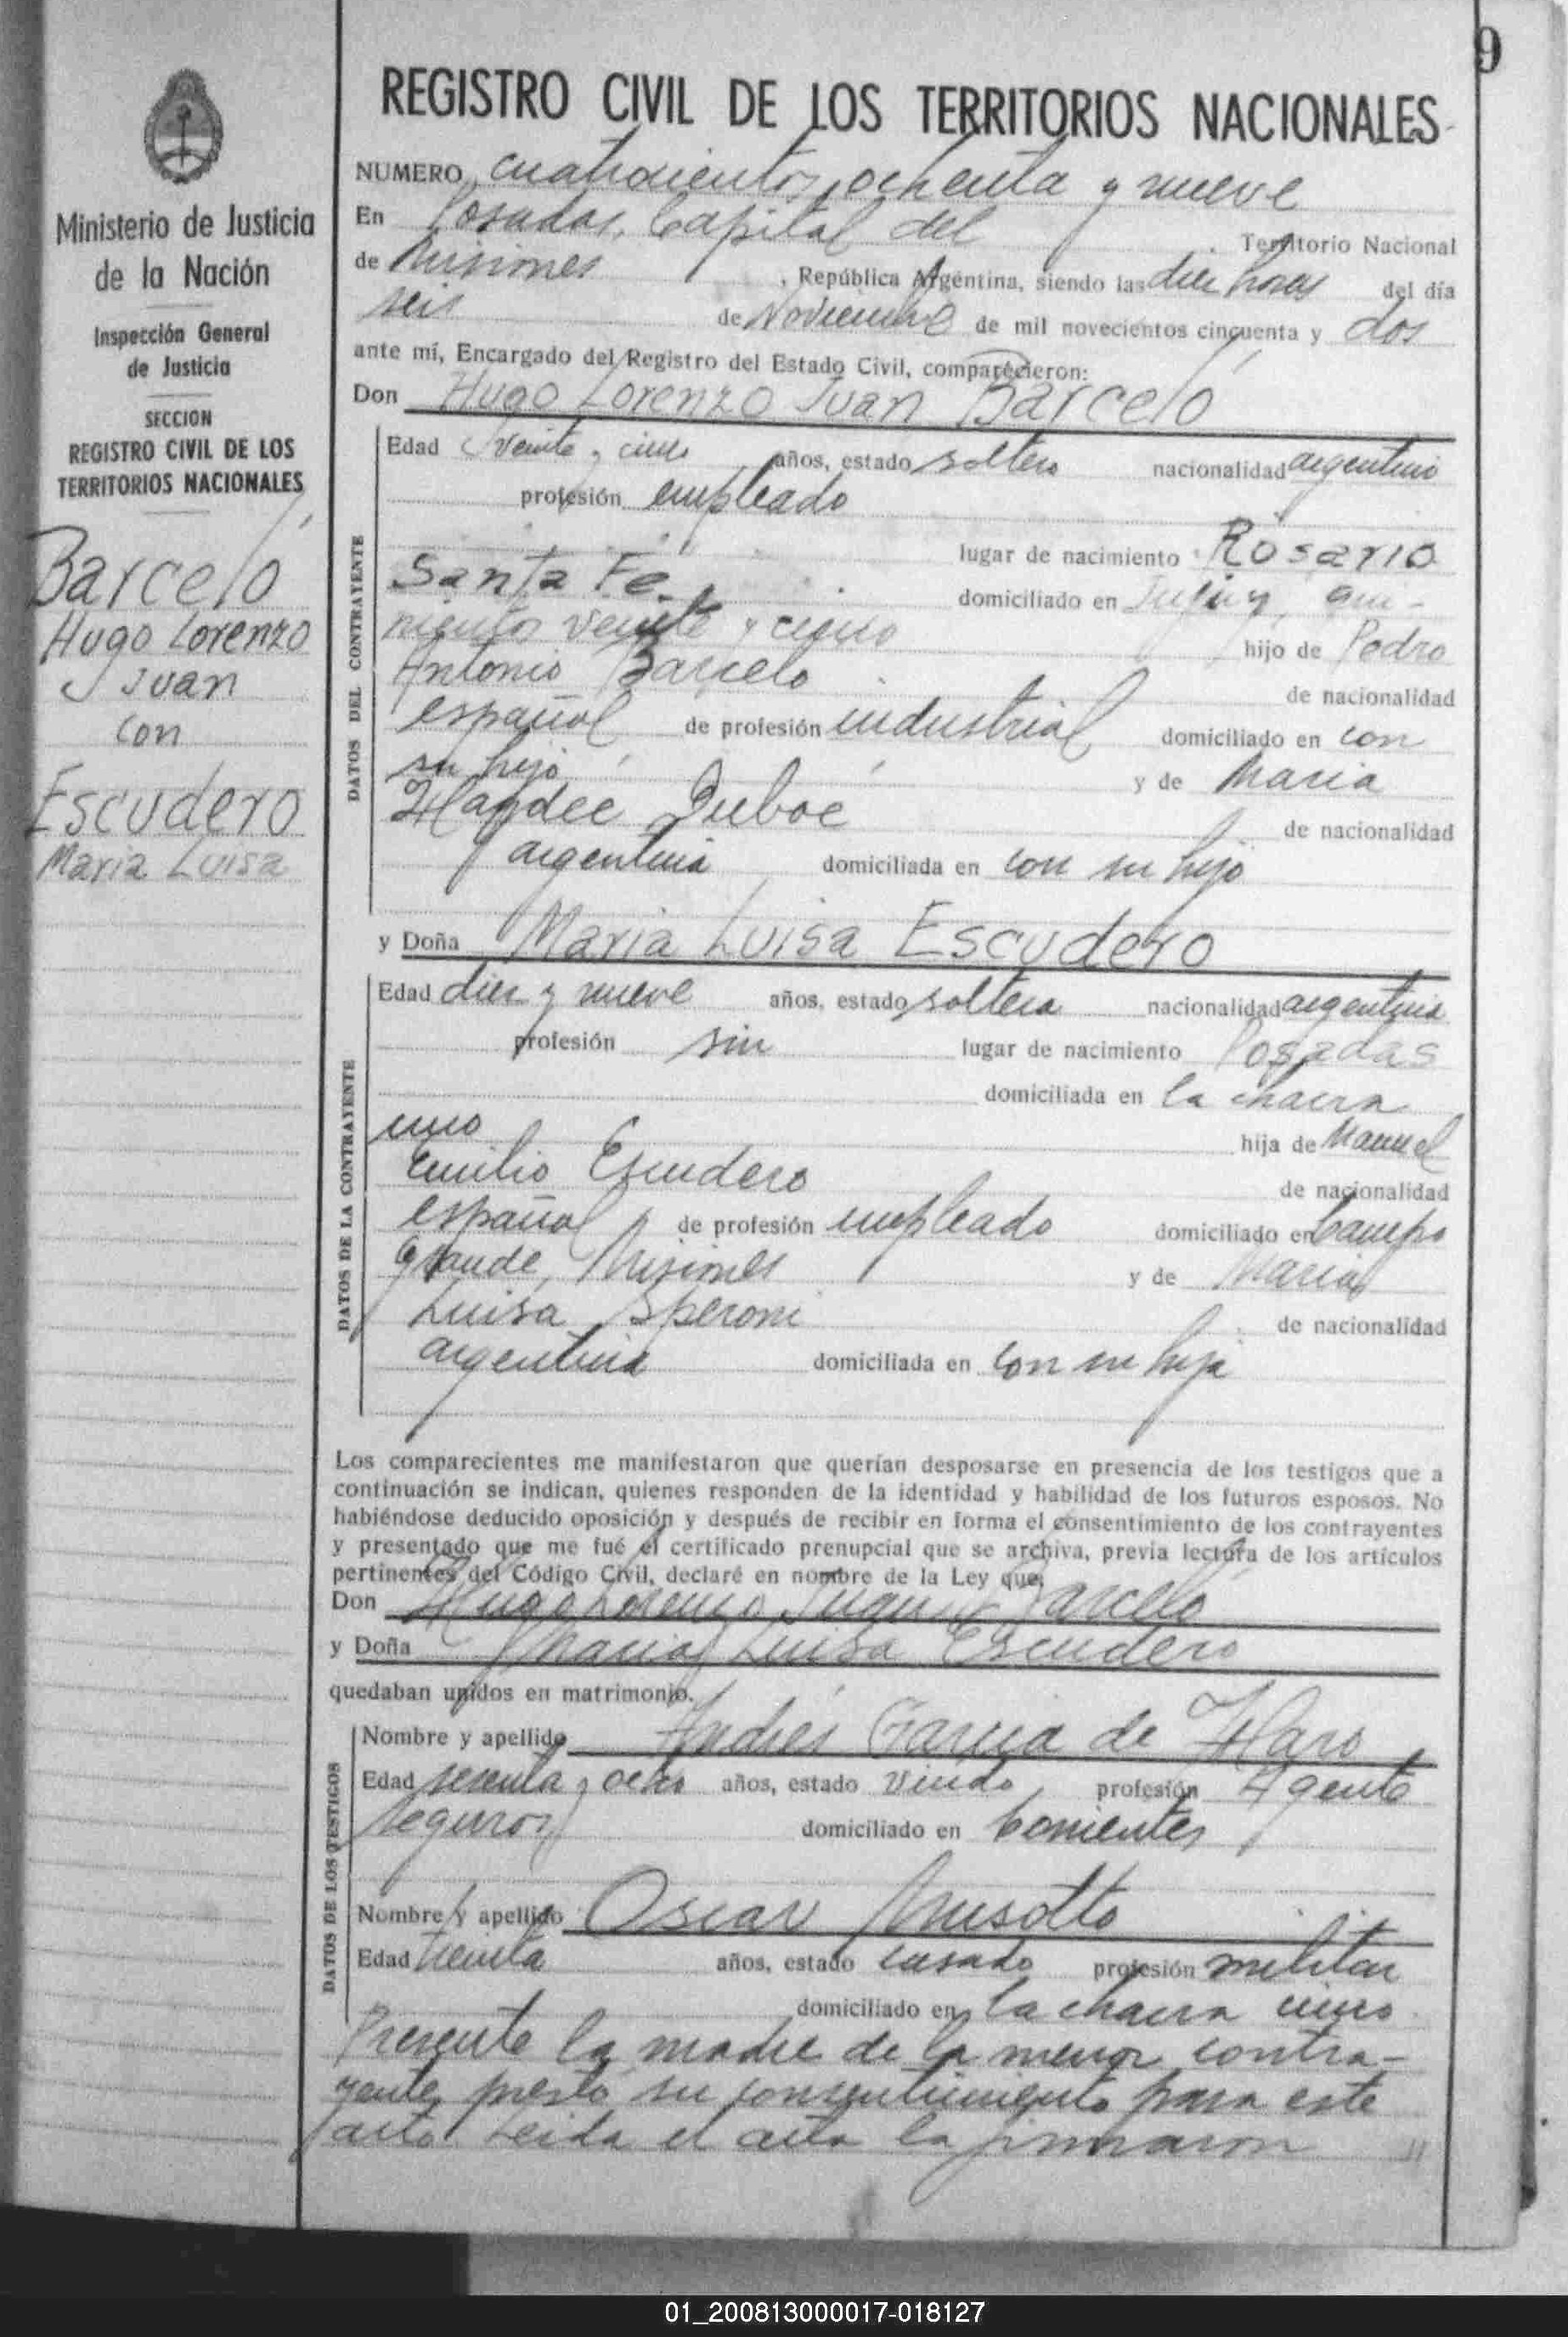 9
REGISTRO CIVIL DE LOS TERRITORIOS NACIONALES
Ministerio de Justicia
de la Nación
Inspección General
de Justicia
SECCION
REGISTRO CIVIL DE LOS
TERRITORIOS NACIONALES
Barceló
Hugo Lorenzo
Juan
con
Escudero
Maria Luisa
NUMERO cuatrocientos ochenta y nueve
En Posadas, Capital del Territorio Nacional
de Misiones, República Argentina, siendo las diez horas del día
seis de Noviembre de mil novecientos cincuenta y dos
ante mí, Encargado del Registro del Estado Civil, comparecieron:
Don Hugo Lorenzo Juan Barceló
DATOS DEL CONTRAYENTE
Edad veinte y cinco años, estado soltero nacionalidad argentino
profesión empleado
lugar de nacimiento Rosario
Santa Fe. domiciliado en Jujuy, qui-
nientos veinte y cinco hijo de Pedro
Antonio Barceló de nacionalidad
español de profesión industrial domiciliado en con
su hijo y de Maria
Haydee Duboe de nacionalidad
argentina domiciliada en con su hijo
y Doña Maria Luisa Escudero
DATOS DE LA CONTRAYENTE
Edad diez y nueve años, estado soltera nacionalidad argentina
profesión sin lugar de nacimiento Posadas
domiciliada en la chacra
uno hija de Manuel
Emilio Escudero de nacionalidad
español de profesión empleado domiciliado en Campo
Grande, Misiones y de Maria
Luisa Speroni de nacionalidad
argentina domiciliada en con su hija
Los comparecientes me manifestaron que querían desposarse en presencia de los testigos que a
continuación se indican, quienes responden de la identidad y habilidad de los futuros esposos. No
habiéndose deducido oposición y después de recibir en forma el consentimiento de los contrayentes
y presentado que me fué el certificado prenupcial que se archiva, previa lectura de los artículos
pertinentes del Código Civil, declaré en nombre de la Ley que:
Don Hugo Lorenzo Juan Barceló
y Doña Maria Luisa Escudero
quedaban unidos en matrimonio.
DATOS DE LOS TESTIGOS
Nombre y apellido Andrés Garcia de Haro
Edad sesenta y ocho años, estado viudo profesión Agente
seguros domiciliado en Corrientes
Nombre y apellido Oscar Musotto
Edad treinta años, estado casado profesión militar
domiciliado en la chacra uno
Presente la madre de la menor contra-
yente prestó su consentimiento para este
acto. Leida el acta la firmaron //
01_200813000017-018127